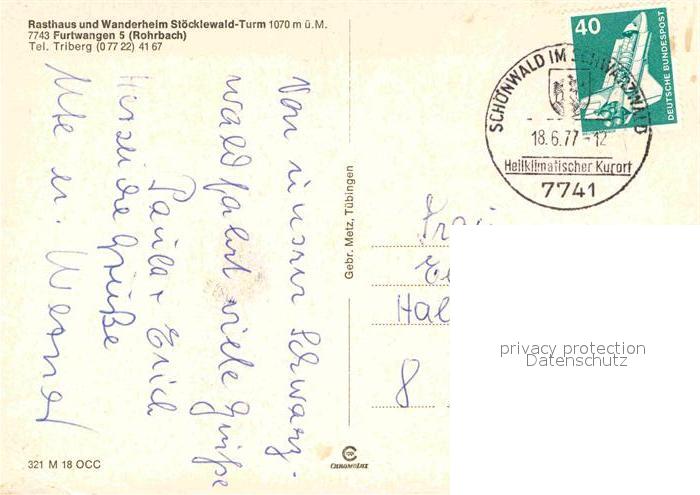 Rasthaus und Wanderheim Stöcklewald-Turm 1070 m ü.M.
7743 Furtwangen 5 (Rohrbach)
Tel. Triberg (0 77 22) 41 67
Von unserer Schwarz-
waldfahrt viele Grüße
Paula + Erich
Herzliche Grüße
Ute u. Werner
321 M 18 OCC
Gebr. Metz, Tübingen
CHROMOLUX
40
DEUTSCHE BUNDESPOST
SCHÖNWALD IM SCHWARZWALD
18.6.77-12
Heilklimatischer Kurort
7741
Frau
Hal
8
privacy protection
Datenschutz